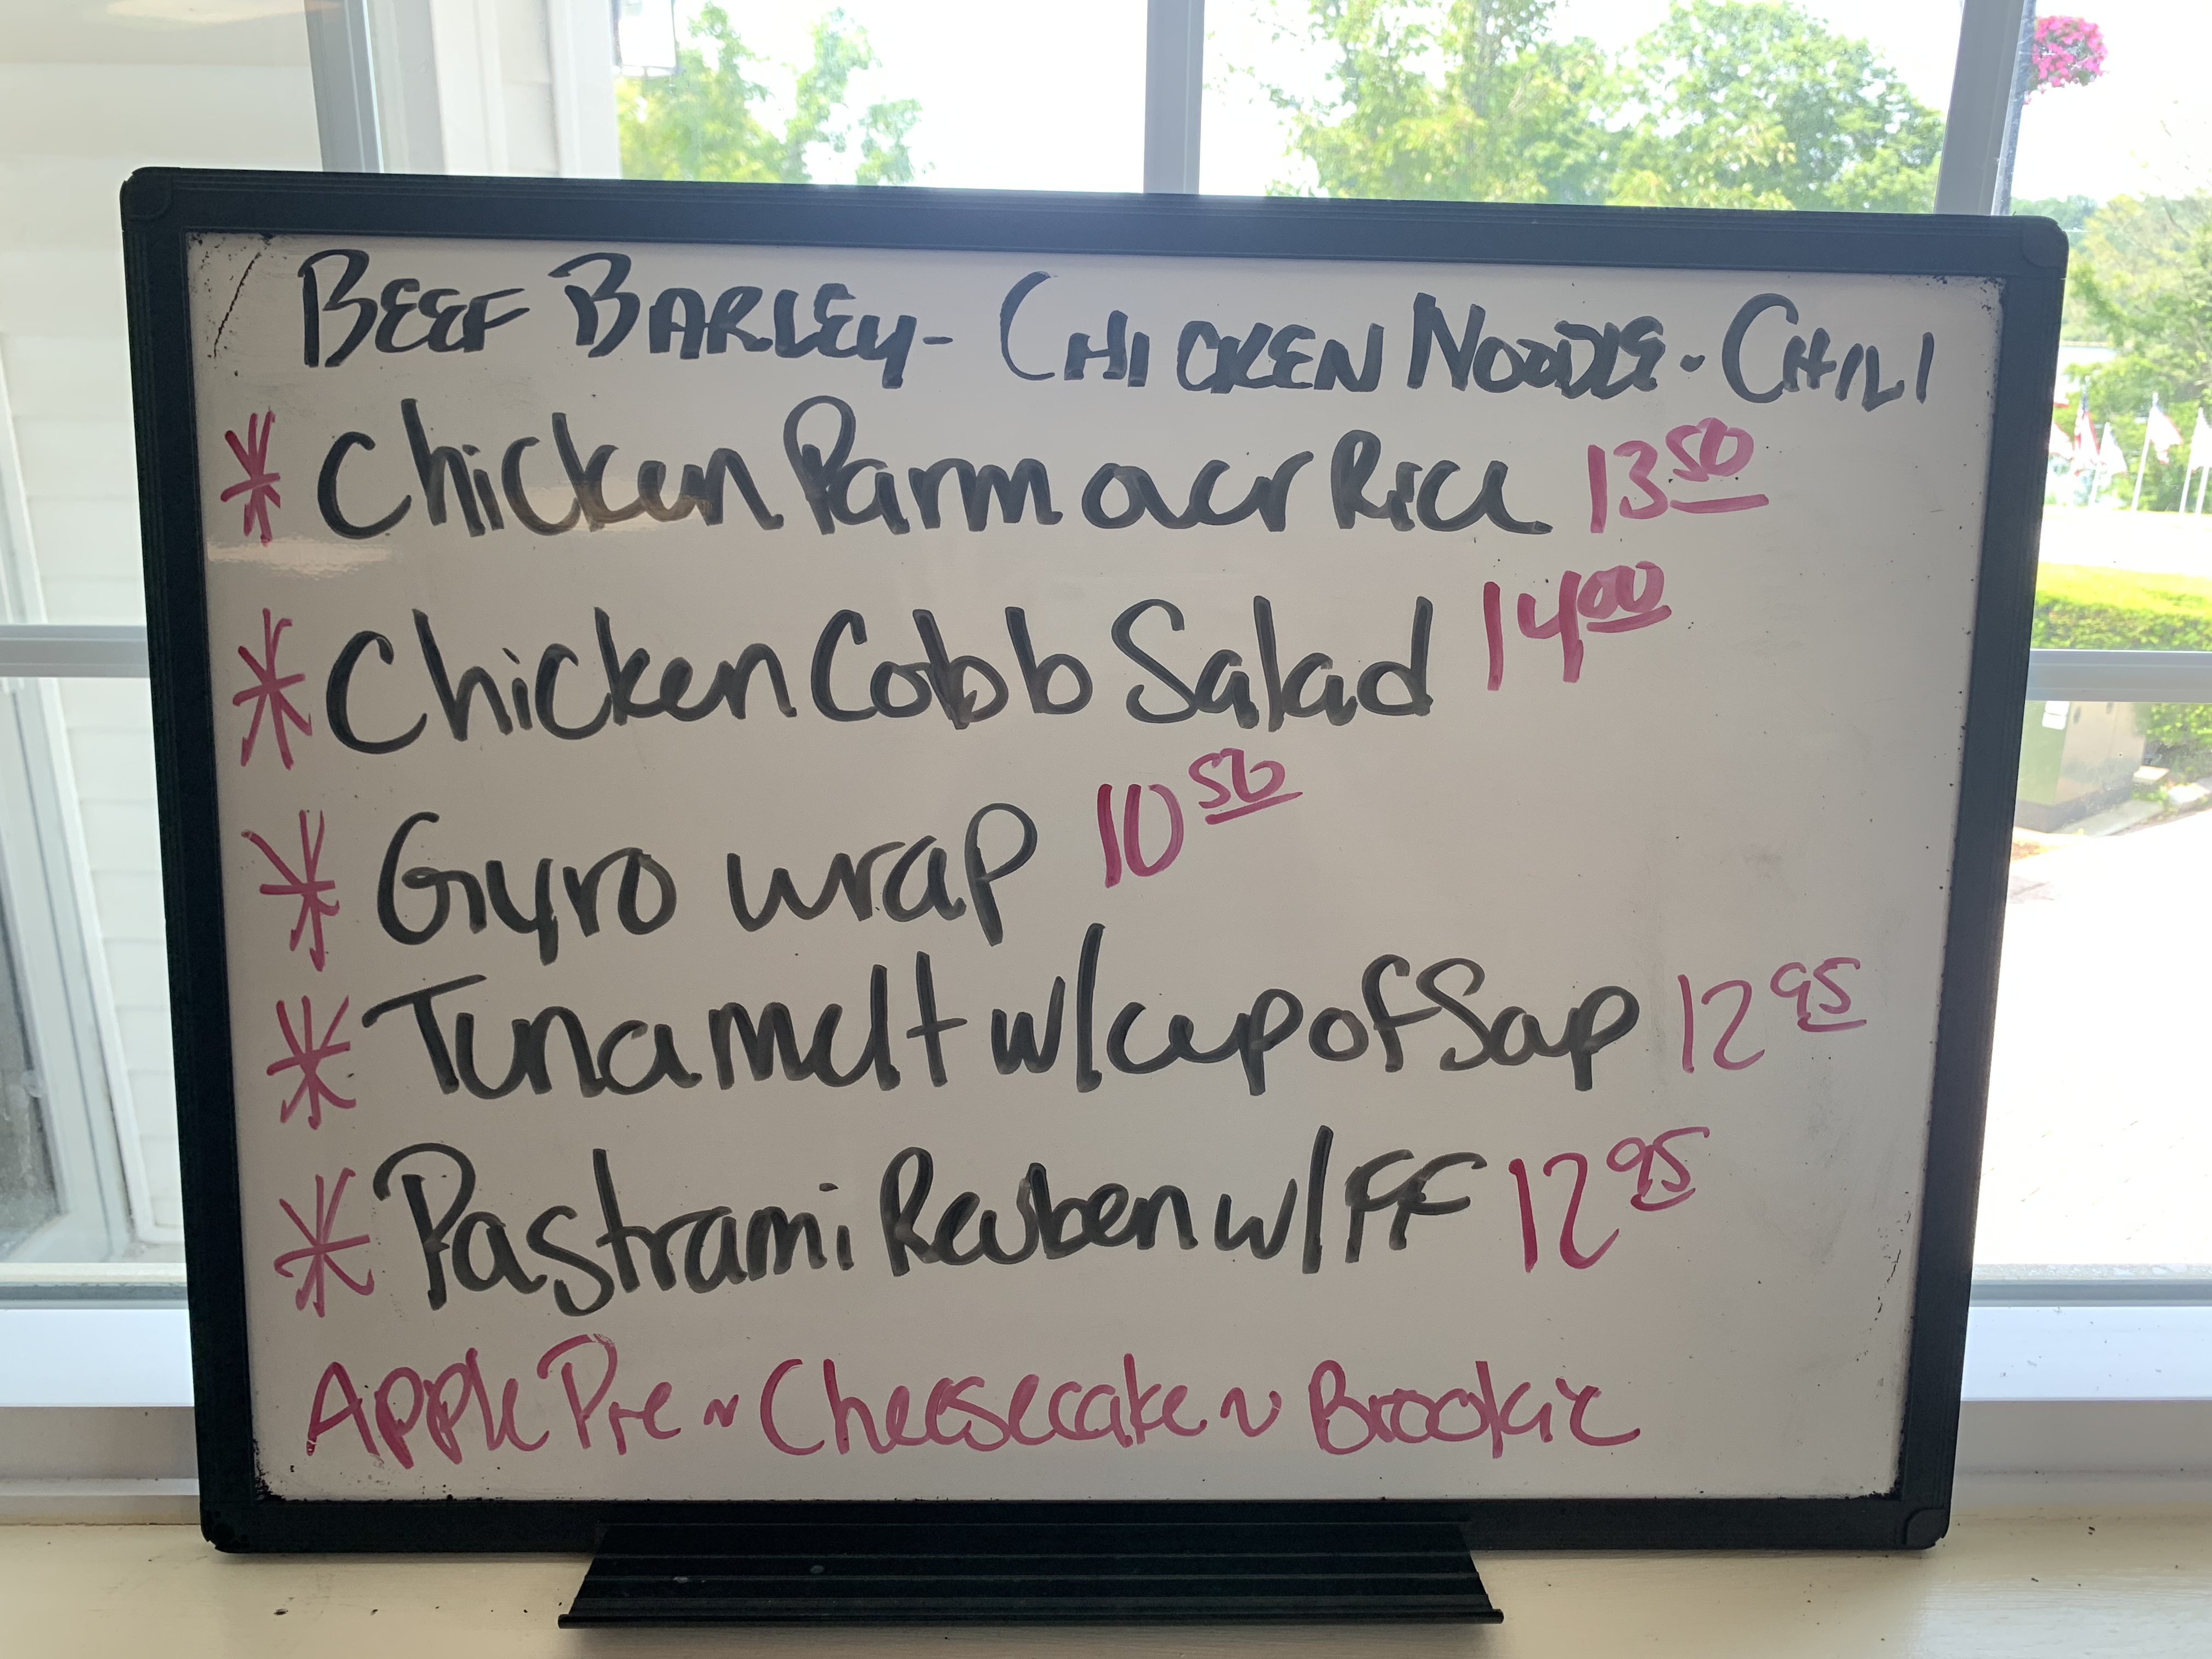 BEEF BARLEY - CHICKEN NOODLE - CHILI
* Chicken Parm over Rice 13 50
* Chicken Cobb Salad 14 00
* Gyro wrap 10 50
* Tuna melt w/cup of Soup 12 95
* Pastrami Reuben w/FF 12 95
Apple Pie ~ Cheesecake ~ Brookie